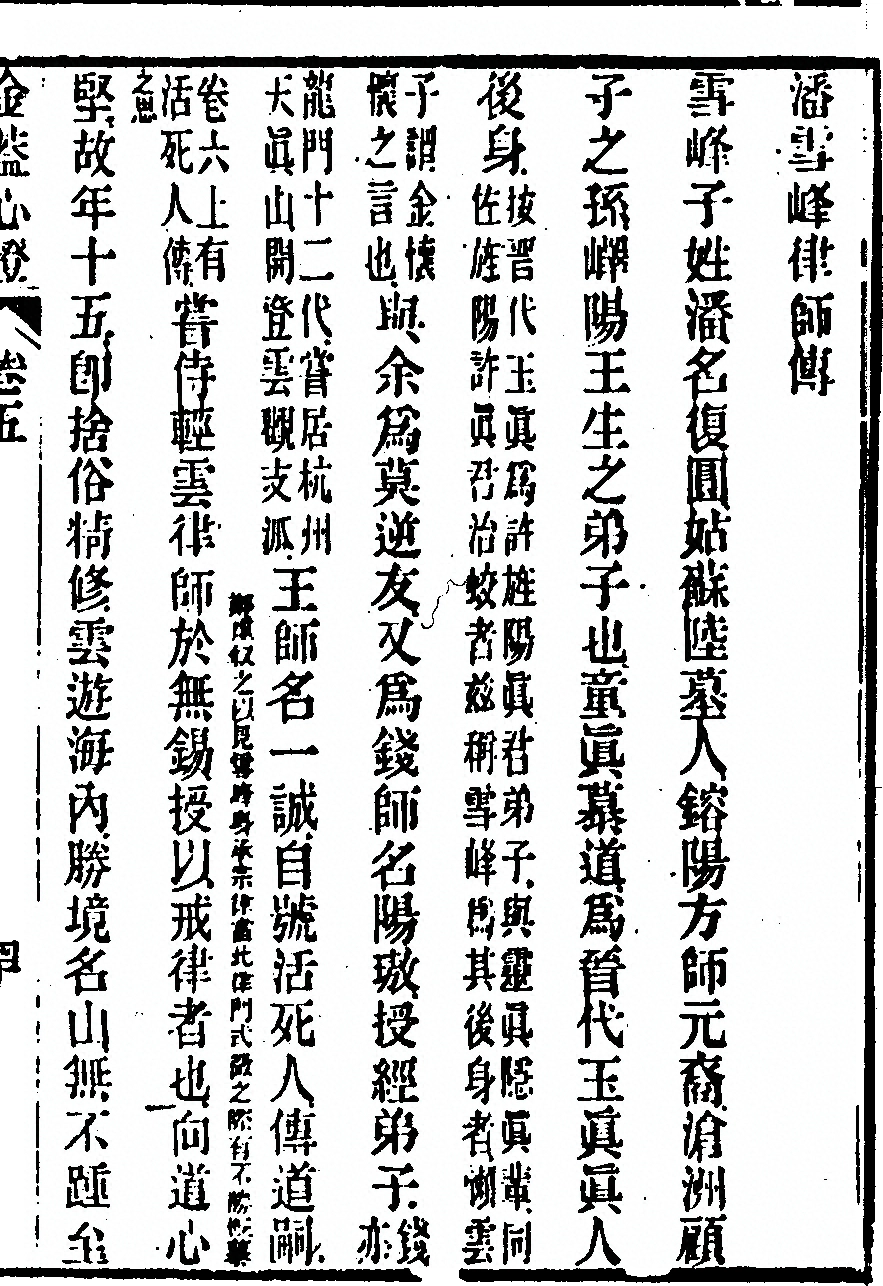 潘雪峰律師傳
雪峰子姓潘名復圓姑蘇陸墓人鎔陽方師元裔滄洲顧
子之孫嶧陽王生之弟子也童眞慕道爲晉代玉眞眞人
後身按晉代玉眞爲許旌陽眞君弟子與靈眞隱眞輩同佐旌陽許眞君治蛟者兹稱雪峰爲其後身者懶雲
子謂金懷懷之言也與余爲莫逆友又爲錢師名陽璈授經弟子錢亦
龍門十二代嘗居杭州大眞山開登雲觀支派王師名一誠自號活死人傳道嗣
卷六上有活死人傳嘗侍輕雲律師於無錫授以戒律者也向道心
之以見雪峰身承宗律
之思
堅故年十五卽捨俗精修雲遊海內勝境名山無不踵至
金蓋心燈
卷五
四